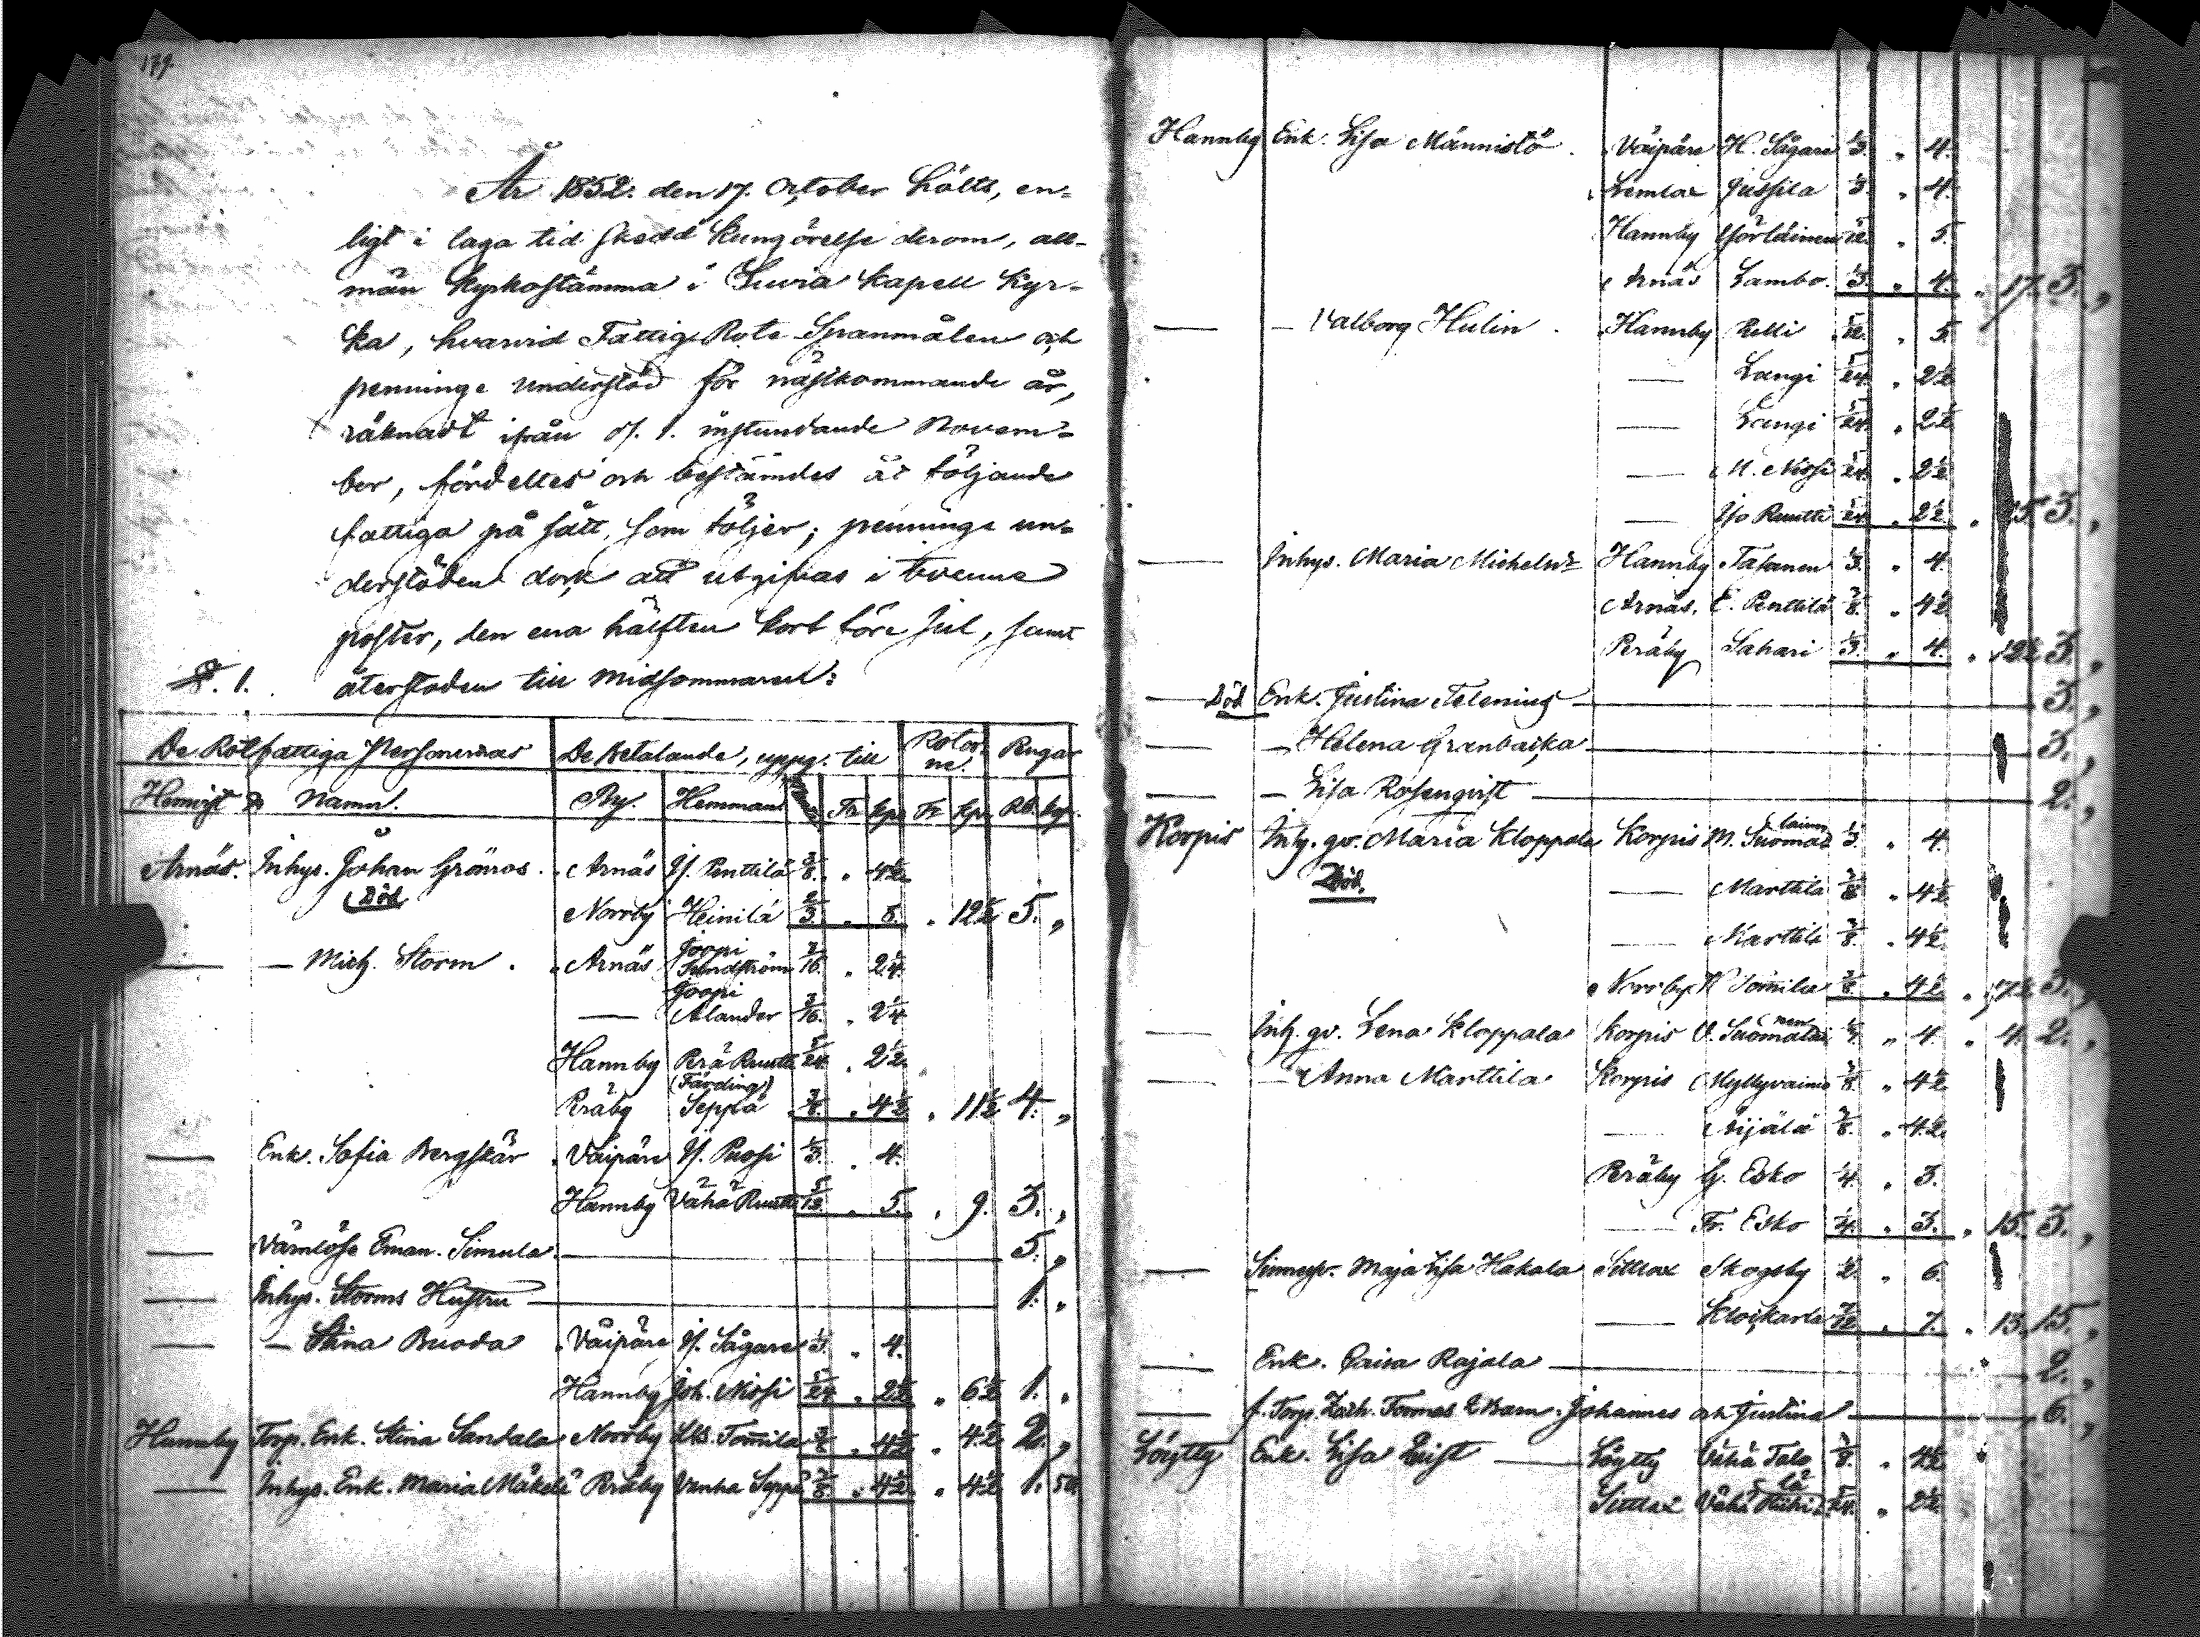 139.
År 1852. den 17. October hölts, en-
ligt i laga tid skedd kungörelse derom, all-
män kyrkostämma i Luvia Kapell Kyr-
ka, hvarvid Fattige Rote Spanmålen och
penninge understöd för nästkommande år,
räknadt ifrån d. 1. instundande Novem-
ber, fördeltes och bestämdes åt följande
fattiga på sätt, som följer; penninge un-
derstöden dock att utgifvas i tvenne
poster, den ena hälften kort före jul, samt
§. 1. återstoden till midsommaren:
De Rotfattiga Personernas De Betalande, uppg. till Penga
Hemvist Namn. By. Hemman Fr. kpr Fr. kpr Rb. kop.
Arnäs. Inhys. Johan Grönros. Arnäs Penttilä 3/8. „ 4½
Död Norrby Heinilä 2/3. „ 8. „ 12½ 5. „
— — Mich. Storm. Arnäs Joopi Sundström 3/16. „ 2¼
— Joopi Ålander 3/16. „ 2¼
Hannby Perä Ruutti 5/24 „ 2½
(Färding)
Peräby Seppä 3/8. „ 4½ „ 11½ 4. „
— Enk. Sofia Bergskär Väipäre Puosi 1/3. „ 4.
Hannby Vähä Ruutti 5/12. „ 5. „ 9. 3. „
— Värnlöse Eman. Simula — 5. „
— Inhys. Storms Hustru — 1. „
— — Stina Buoda Väipäre Sågare 1/3. „ 4.
Hannby Joh. Nissi 5/24 „ 2½ „ 6½ 1. „
Hannby Torp. Enk. Stina Sandala Norrby Tomila 3/8 „ 4½ „ 4½ 2. „
— Inhys. Enk. Maria Mäkelä Peräby Vanha Seppä 3/8 „ 4½ „ 4½ 1. 50
Hannby Enk. Lisa Männistö. Väipäre H. Sågare 1/3. „ 4.
Lemlax Jussila 1/3. „ 4.
Hannby 5/12. „ 5.
Arnäs Lambo. 1/3. „ 4. „ 17. 3. „
— — Valborg Hulin. Hannby Pelli 5/12. „ 5.
— Langi 5/24. „ 2½
— Langi 5/24. „ 2½
— M. Nissi 5/24. „ 2½
— Iso Ruutti 5/24. „ 2½ „ 15. 3. „
— Inhys. Maria Michelsdr Hannby Tahanen 1/3. „ 4.
Arnäs. E. Penttilä 3/8. „ 4½
Peräby Sahari 1/3. „ 4. „ 12½ 3. „
— Död Enk. Justina Telenius — 3. „
— — Helena Grenbacka — 3. „
— — Lisa Rosenqvist — 2. „
Korpis Inh. gv. Maria Kloppala Korpis M. Suomalainen 1/3. „ 4.
Död. — Marttila 3/8 „ 4½
— Marttila 3/8. „ 4½
Norrby Tomila 3/8 „ 4½ „ 17½ 3. „
— Inh. gv. Lena Kloppala Korpis Suomalainen „ 4. „ 4. 2. „
— — Anna Marttila Korpis Myllyvainio 3/8. „ 4½
— Äijälä 3/8. „ 4½
Peräby G. Esko 1/4. „ 3.
— Fr. Esko 1/4. „ 3. „ 15. 3. „
— Sinnesv. Maja Lisa Hakala Sittlax Skogsby 1/2. „ 6.
— Klockarla 7/12. „ 7. „ 13. 15. „
— Enk. Caisa Rajala — 2. „
— f. Torp. Zach. Tommas 2 Barn. Johannes och Justina — 6. „
Löytty Enk. Lisa Quist — Löytty Vähä Talo 3/8. „ 4½
Sittlax Vähä 5/24. „ 2½